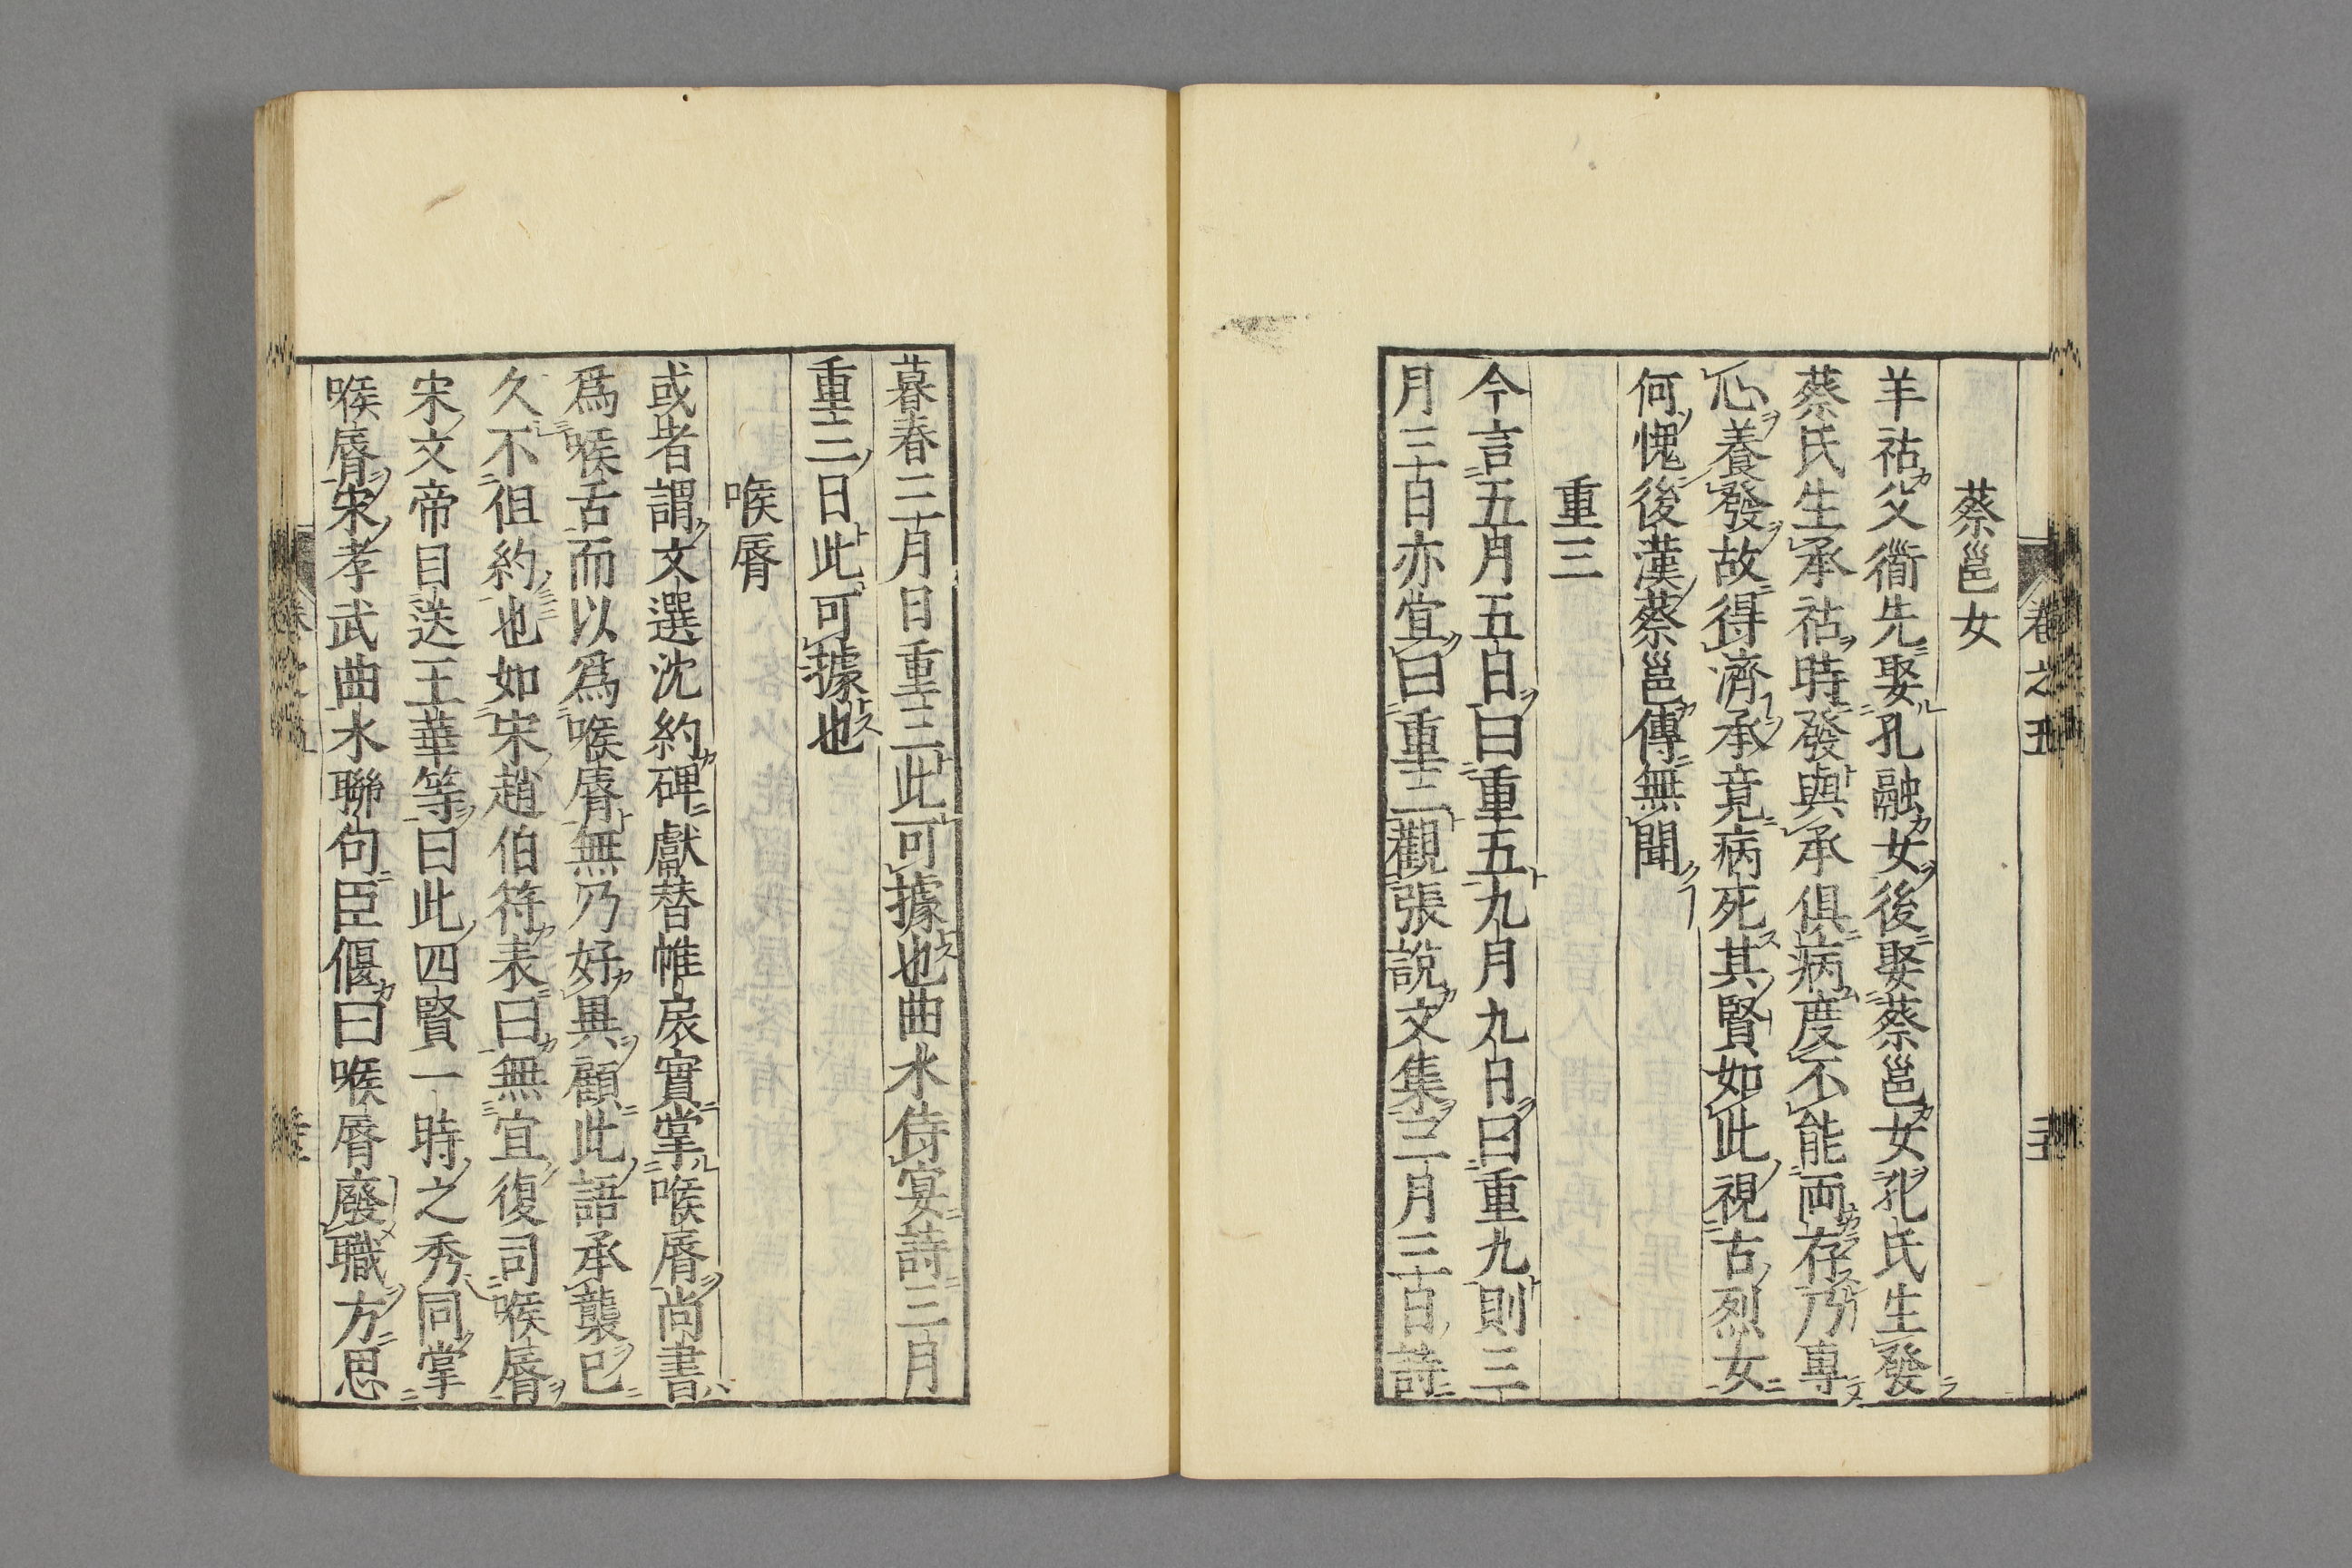 蔡邕女
羊祜父衟先娶孔融女後娶蔡邕女孔氏生發
蔡氏生承祜時發與承俱病度不能両存乃專
心養發故得濟承竟病死其賢如此視古烈女
何愧後漢蔡邕傳無聞
重三
今言五月五日曰重五九月九日曰重九則三
月三日亦宜曰重三觀張說文集三月三日詩
暮春三月日重三此可據也曲水侍宴詩三月
重三日此可據也
喉脣
或者謂文選沈約碑獻替帷扆實掌喉脣尚書
爲喉舌而以爲喉脣無乃好異顧此語承襲已
久不但約也如宋趙伯符表曰無宜復司喉脣
宋文帝目送王華等曰此四賢一時之秀同掌
喉脣宋孝武曲水聯句臣偃曰喉脣廢職方思
卷之五